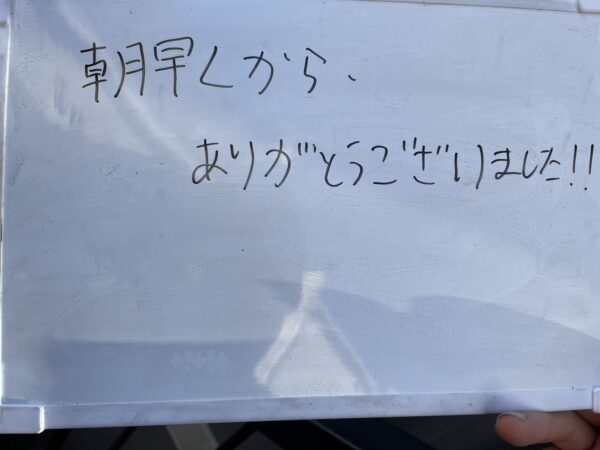 朝早くから、
ありがとうございました!!